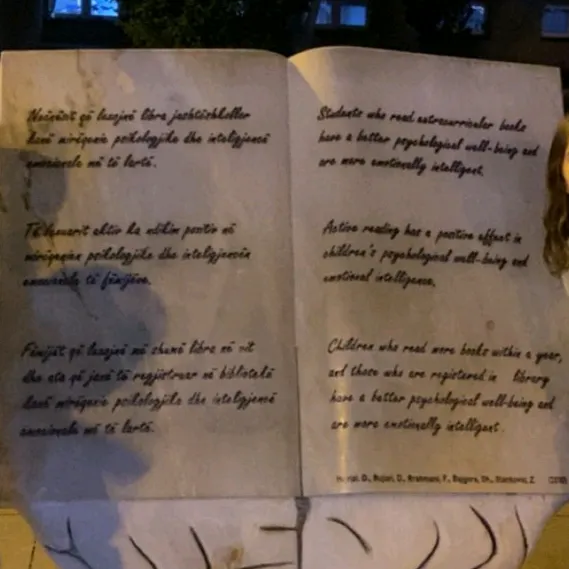 Nxënësit që lexojnë libra jashtëshkollor
kanë mirëqenie psikologjike dhe inteligjencë
emocionale më të lartë.
Të lexuarit aktiv ka ndikim pozitiv në
mirëqenien psikologjike dhe inteligjencën
emocionale të fëmijëve.
Fëmijët që lexojnë më shumë libra në vit
dhe ata që janë të regjistruar në bibliotekë
kanë mirëqenie psikologjike dhe inteligjencë
emocionale më të lartë.
Students who read extracurricular books
have a better psychological well-being and
are more emotionally intelligent.
Active reading has a positive effect in
children's psychological well-being and
emotional intelligence.
Children who read more books within a year,
and those who are registered in library
have a better psychological well-being and
are more emotionally intelligent.
D., Bujari, D., Rrahmani, F., Bajgora, Sh., Stankovic, Z.